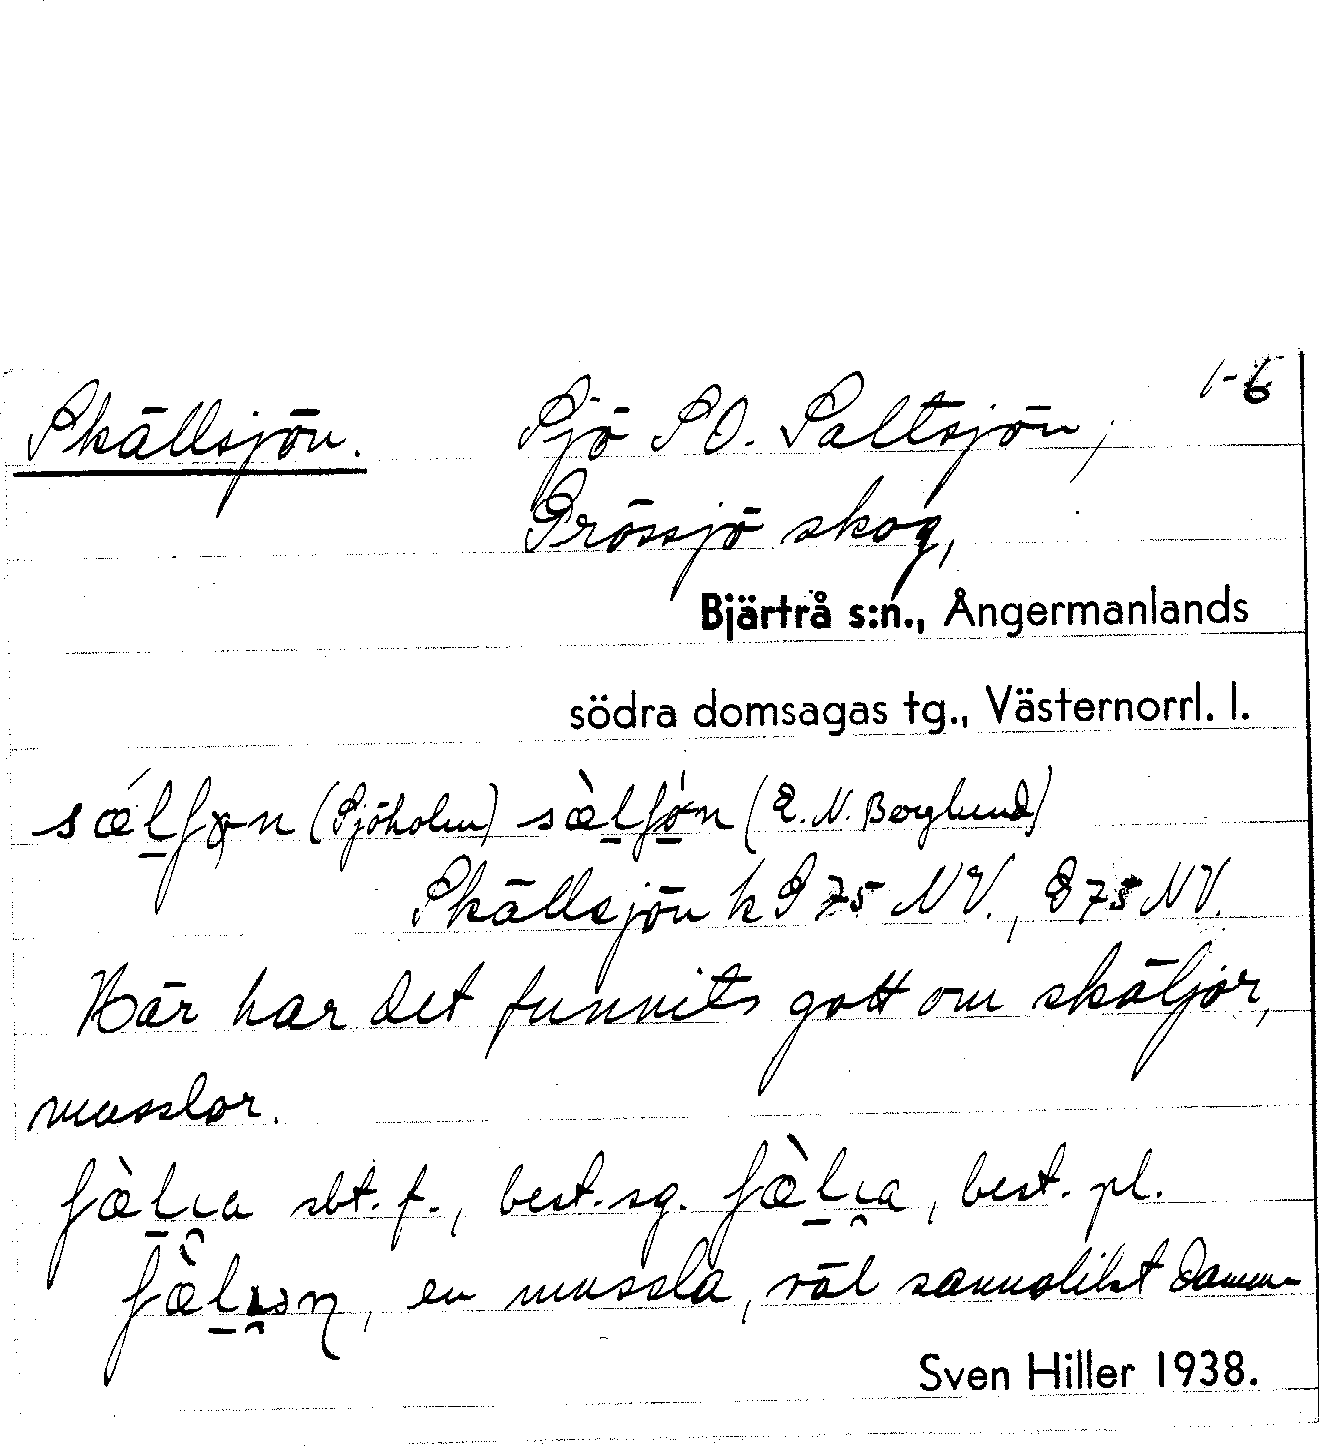 1-6
Skällsjön. Sjö SO. Saltsjön,
Prössjö skog,
Bjärtrå s:n., Ångermanlands
södra domsagas tg., Västernorrl. l.
(Sjöholm) (E. N. Berglund)
Skällsjön k NV., NV.
Här har det funnits gott om skäljor,
musslor.
sbt. f., best. sg. , best. pl.
, en mussla, väl sannolikt damm-
Sven Hiller 1938.